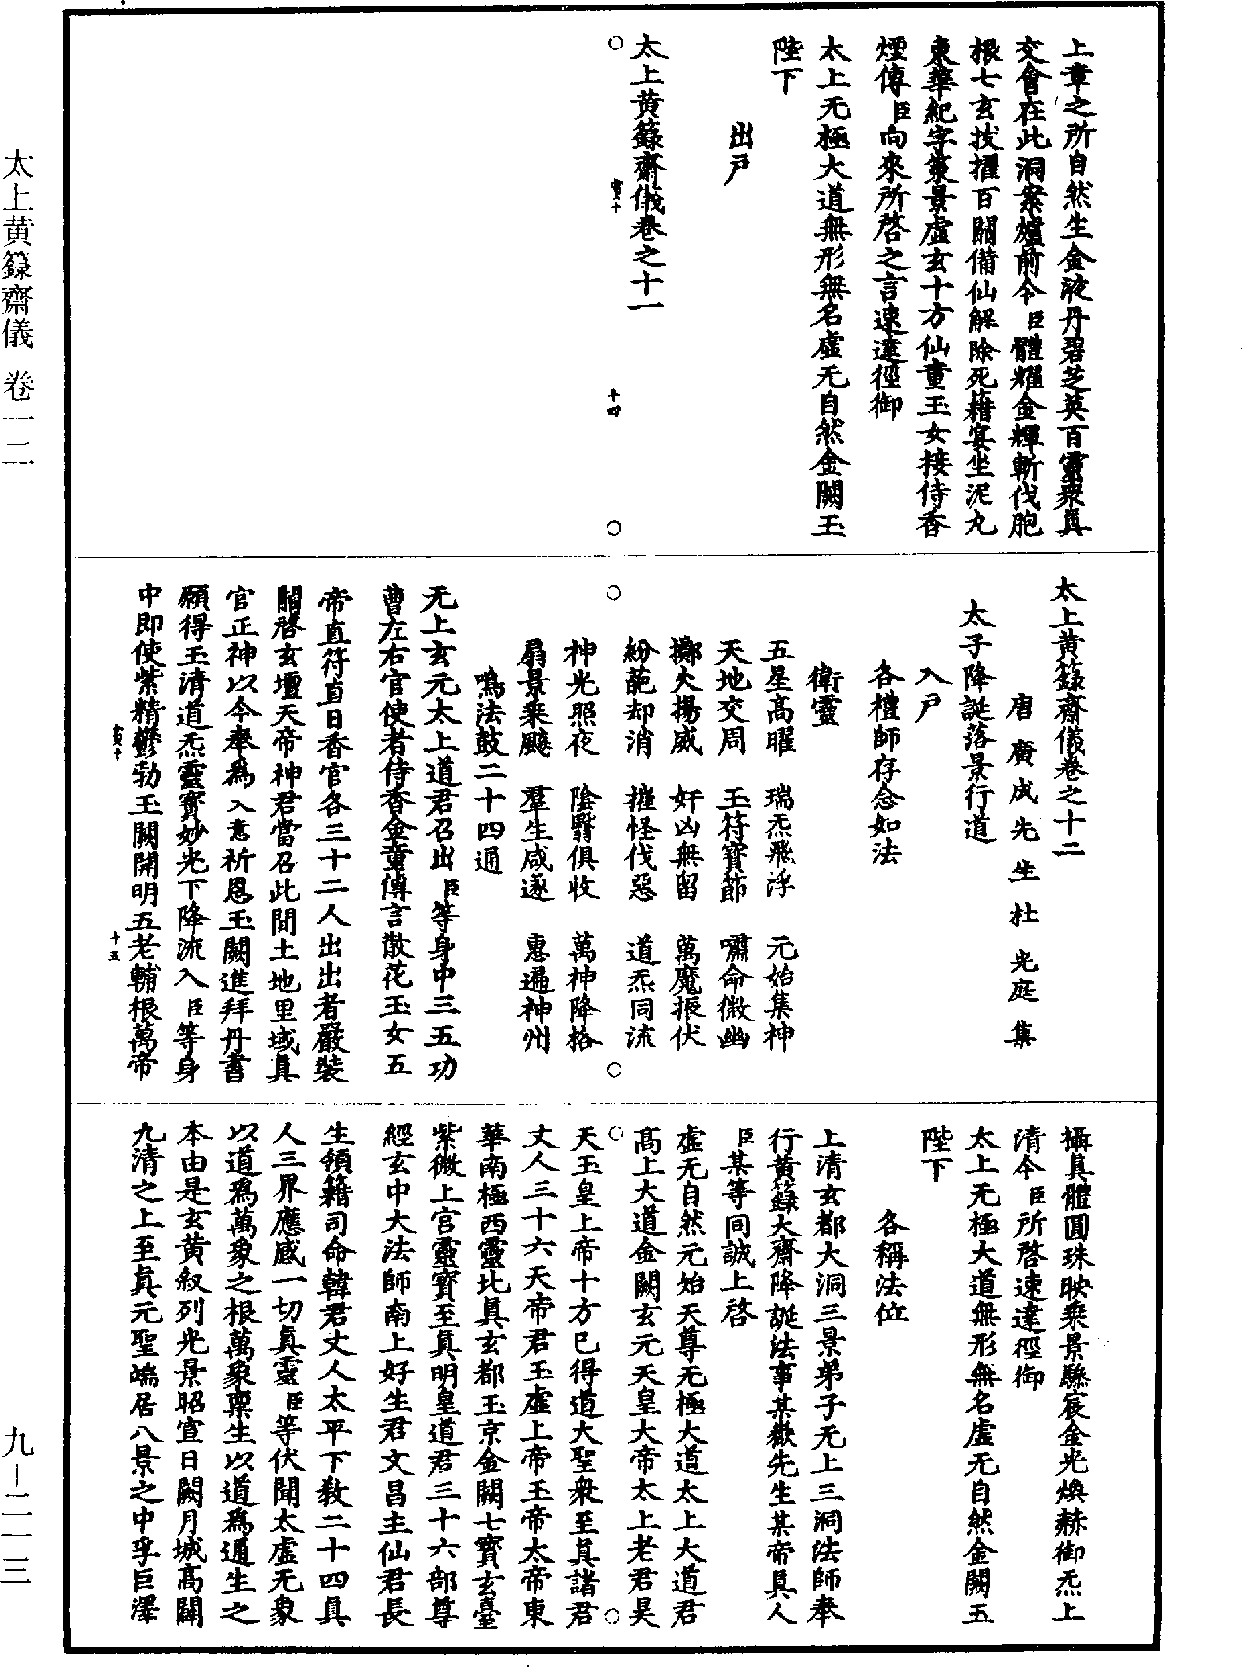 上章之所自然生金液丹碧芝英百靈眾真
交會在此洞案爐前令臣體耀金輝斬伐胞
根七玄拔擢百關備仙解除死籍宴坐泥丸
東華紀字策景虛玄十方仙童玉女接侍香
煙傳臣向來所啓之言速達徑御
太上无極大道無形無名虛无自然金闕玉
陛下
出戶
太上黃籙齋儀卷之十一
十四
太上黃籙齋儀卷之十二
唐廣成先生杜光庭集
太子降誕落景行道
入戶
各禮師存念如法
衛靈
五星高曜 瑞炁飛浮 元始集神
天地交周 玉符寶節 嘯命微幽
擲火揚威 奸凶無留 萬魔振伏
紛葩却消 摧怪伐惡 道炁同流
神光照夜 陰翳俱收 萬神降格
扇景乘飈 羣生咸遂 惠遍神州
鳴法鼓二十四通
无上玄元太上道君召出臣等身中三五功
曹左右官使者侍香金童傳言散花玉女五
帝直符直日香官各三十二人出出者嚴裝
關啓玄壇天帝神君當召此間土地里域真
官正神以今奉為入意祈恩玉闕進拜丹書
願得玉清道炁靈寶妙光下降流入臣等身
中即使紫精鬱勃玉闕開明五老輔根萬帝
十五
攝真體圓珠映乘景驂宸金光煥赫御炁上
清今臣所啓速達徑御
太上无極大道無形無名虛无自然金闕玉
陛下
各稱法位
上清玄都大洞三景弟子无上三洞法師奉
行黃籙大齋降誕法事某嶽先生某帝真人
臣某等同誠上啓
虛无自然元始天尊无極大道太上大道君
高上大道金闕玄元天皇大帝太上老君昊
天玉皇上帝十方已得道大聖衆至真諸君
丈人三十六天帝君玉虛上帝玉帝太帝東
華南極西靈北真玄都玉京金闕七寶玄臺
紫微上宮靈寶至真明皇道君三十六部尊
經玄中大法師南上好生君文昌主仙君長
生領籍司命韓君丈人太平下教二十四真
人三界應感一切真靈臣等伏聞太虛无象
以道為萬象之根萬象稟生以道為通生之
本由是玄黃叙列光景昭宣日闕月城高闢
九清之上至真元聖端居八景之中孚巨澤
太上黃籙齋儀 卷一二
九—二一三